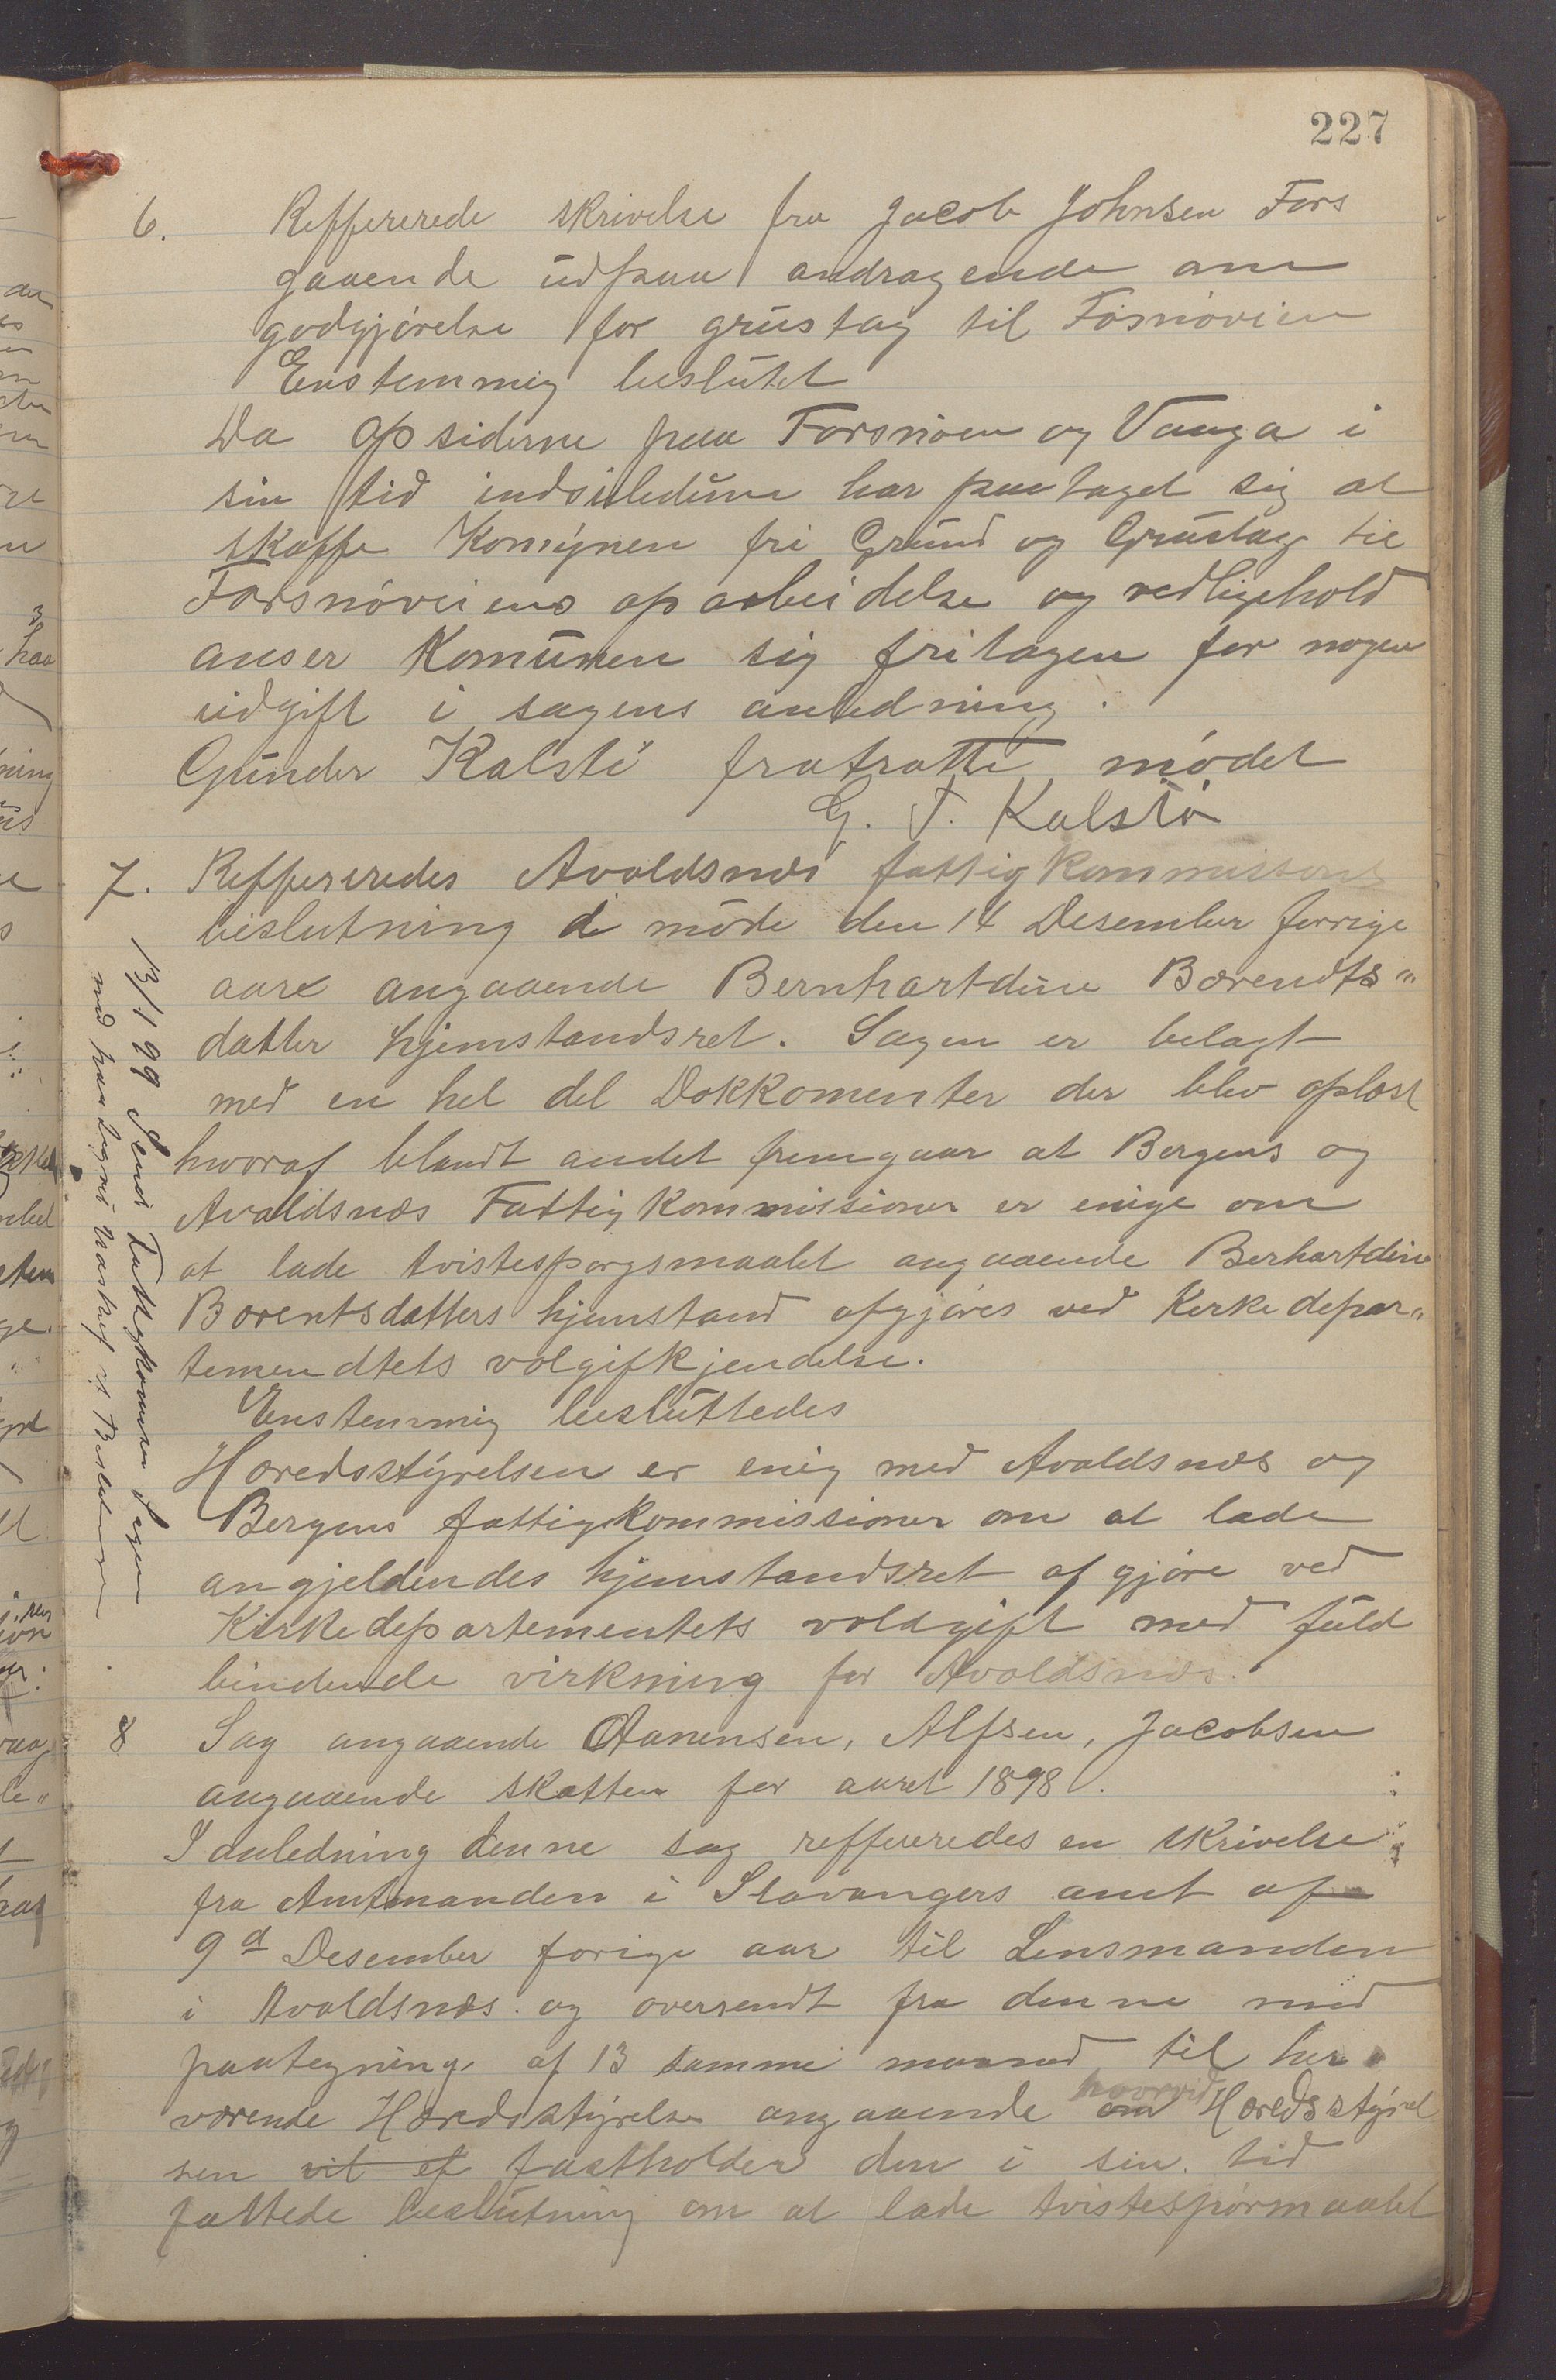 227
6. Reffererede skrivelse fra Jacob Johnsen Fors
gaaende udpaa andragende om
godgjørelse for grustag til Fosnøvien
Enstemmig beslutet
Da opsiderne paa Forsnøen og Vanga i
sin tid har paataget sig at
skaffe Komynen fri Grund og Grustag til
Forsnøveiens oparbeidelse og vedligehold
anser Komunen sig fritagen for nogen
udgift i sagens anledning.
Gunder Kalstø fratratte mødet
G. T. Kalstø
7. Reffereredes Avaldsnæs fattigkommissions
beslutning i møde den 14 Desember forrige
aar angaaende Bernhartdine Bærendts„
datter hjemstandsret. Sagen er belagt
med en hel del Dokkomenter der blev oplæst
hvoraf blandt andet fremgaar at Bergens og
Avaldsnæs Fattigkommissioner er enige om
at lade tvistespørgsmaalet angaaende Berhartdine
Borentsdatters hjemstand afgjøres ved Kerkedepar„
temendtets volgifkjendelse.
Enstemmig besluttedes
Heredsstyrelsen er enig med Avaldsnæs og
Bergens fattigkommissioner om at lade
angjeldendes hjemstandsret afgjøre ved
Kirkedepartementets voldgift med fuld
bindende virkning for Avaldsnæs.
13/1 99 Sendt Fattigkomisen Sagen
med paategnet Udskrift af Beslutningen
8 Sag angaaende Aanensen, Alfsen, Jacobsen
angaaende skatten for aaret 1898.
I anledning denne sag reffereredes en skrivelse
fra Amtmanden i Stavangers amt af
9d Desember forige aar til Lensmanden
i Avaldsnæs og oversendt fra denne med
paategning af 13 samme maaned til her
værende Heredsstyrelse angaaende om hvorvid Heredsstyrel
sen vil ef fastholder den i sin tid
fattede beslutning om at lade tvistespørmaalet